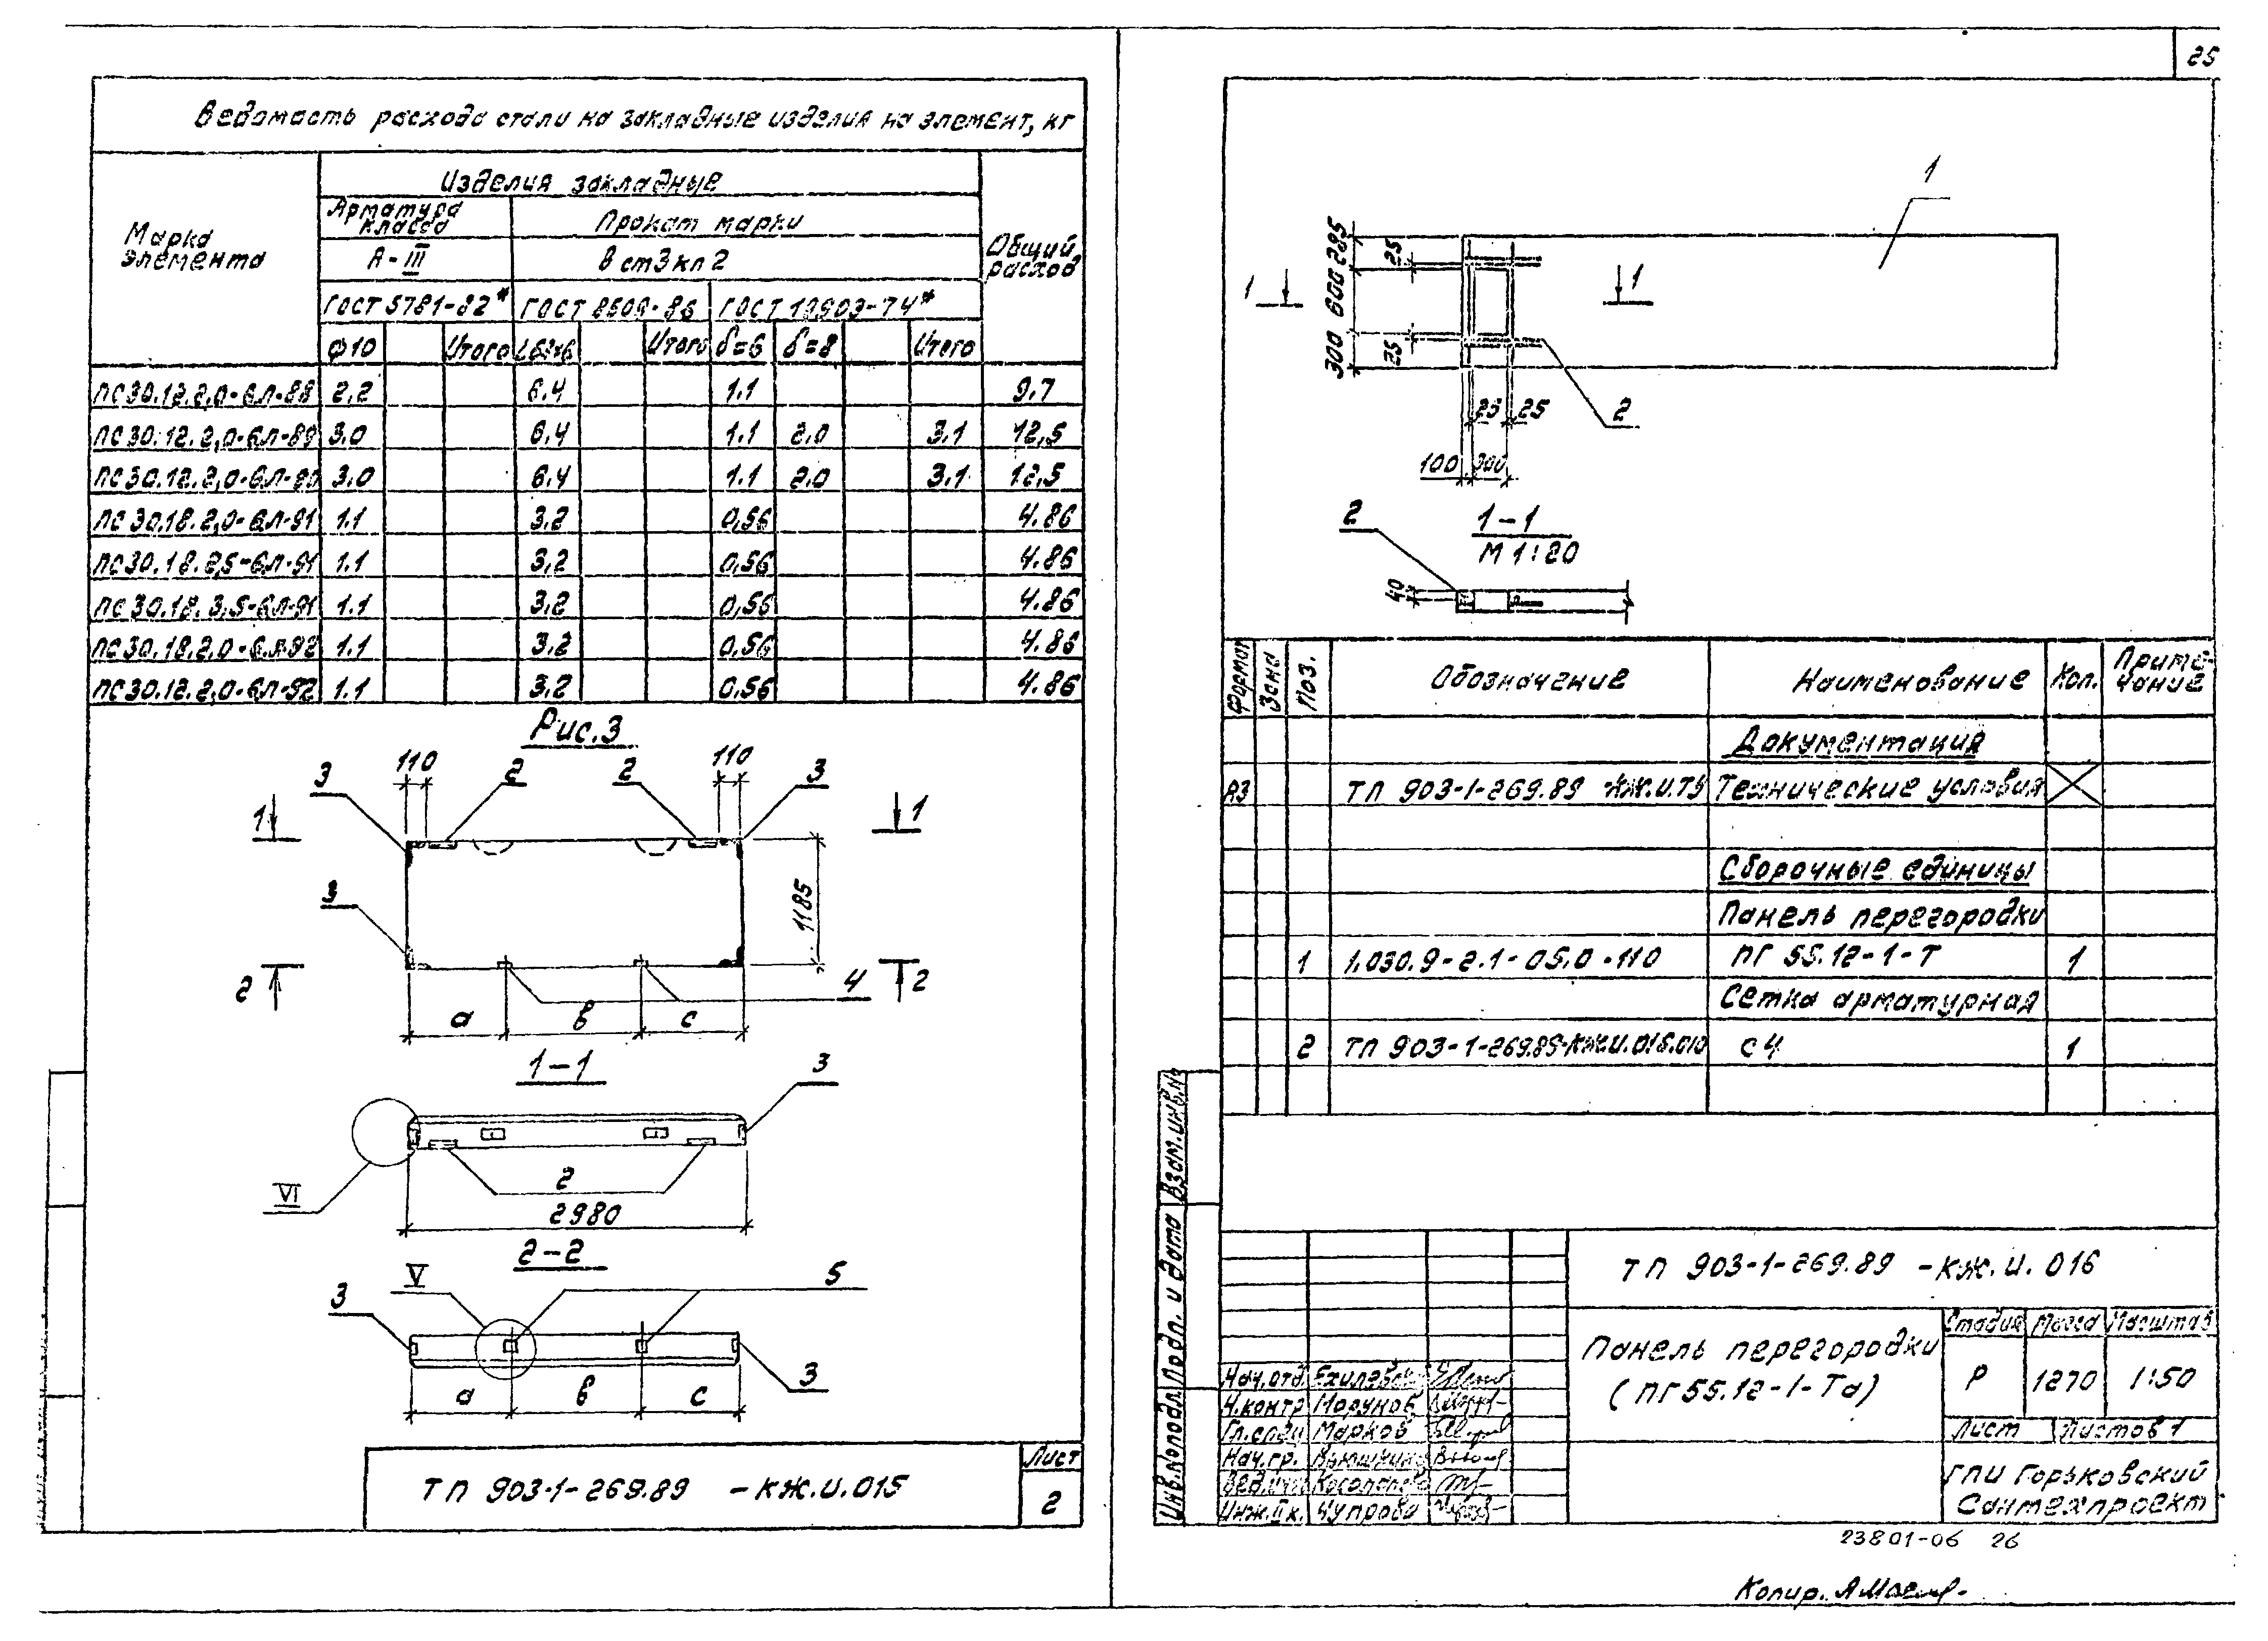 25
Ведомасть расхода стали на закладные изделия на элемент, кг
Марка элемента
Изделия закладные
Общий расход
Арматура класса
Прокат марки
А-III
Вст3кп2
ГОСТ 5781-82*
ГОСТ 8509-86
ГОСТ 19903-74*
ф10 Итого L63х6 Итого δ=6 δ=8 Итого
ПС30.12.2,0-6Л-88 2,2 6,4 1.1 9,7
ПС30.12.2,0-6Л-89 3,0 6,4 1.1 2,0 3.1 12,5
ПС30.12.2,0-6Л-90 3,0 6,4 1.1 2,0 3.1 12,5
ПС30.18.2,0-6Л-91 1.1 3,2 0,56 4.86
ПС30.18.2,5-6Л-91 1.1 3,2 0,56 4.86
ПС30.18.3,5-6Л-91 1.1 3,2 0,56 4.86
ПС30.18.2,0-6Л-92 1.1 3,2 0,56 4.86
ПС30.12.2,0-6Л-92 1.1 3,2 0,56 4.86
Рис.3
3 110 2 2 110 3
1 1
3
1185
2 4 2
а в с
1-1
3
VI
2
2980
2-2
V 5
3
3
а в с
ТП 903-1-269.89 -КЖ.И.015
Лист
2
1
285
600
300
25
25
1 1
2
25 25
100 300
1-1
М 1:20
2
40
Формат Зона Поз. Обозначение Наименование Кол. Примечание
Документация
А3 ТП 903-1-269.89 -КЖ.И.ТУ Технические условия
Сборочные единицы
Панель перегородки
1 1.030.9-2.1-05.0-110 ПГ 55.12-1-Т 1
Сетка арматурная
2 ТП 903-1-269.89-КЖ.И.016.010 С4 1
Инв.№подл. Подп. и дата Взам.инв.№
ТП 903-1-269.89 -КЖ.И.016
Панель перегородки
(ПГ55.12-1-Та)
Стадия Масса Масштаб
Р 1270 1:50
Лист Листов 1
ГПИ Горьковский
Сантехпроект
Нач.отд.
Н.контр Морунов
Гл.спец Марков
Нач.гр. Вьюшкина
Вед.инж
Инж.IIк. Чупрова
23801-06 26
Копир.